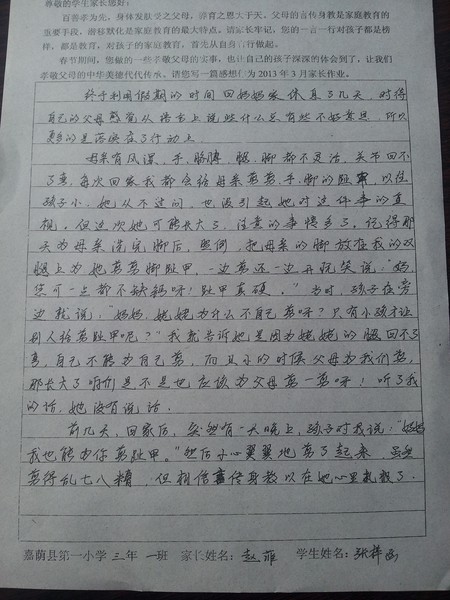 尊敬的学生家长您好:
百善孝为先,身体发肤受之父母,养育之恩大于天,父母的言传身教是家庭教育的
重要手段,潜移默化是家庭教育的最大特点。请家长牢记,您的一言一行对孩子都是榜
样,都是教育,对孩子的家庭教育,首先从自身言行做起。
春节期间,您做的一些孝敬父母的实事,也让自己的孩子深深的体会到了,让我们
孝敬父母的中华美德代代传承,请您写一篇感想作为2013年3月家长作业。
终于利用假期的时间回妈妈家休息了几天,对待
自己的父母感觉从语言上说些什么总有些不好意思,所以
更多的是落实在了行动上
母亲有风湿,手、胳膊、腿、脚都不灵活,关节回不
了弯,每次回家我都会给母亲剪剪手、脚的趾甲,以往
孩子小,她从不过问,也没引起她对这件事的重
视。但这次她可能长大了,注意的事情多了。记得那
天为母亲洗完脚后,照例,把母亲的脚放在我的双
腿上为她剪剪脚趾甲,一边剪还一边开玩笑说:"妈,
您可一点都不缺钙呀!趾甲真硬。"当时,孩子在旁
边就说:"妈妈,姥姥为什么不自己剪呀?只有小孩才让
别人给剪趾甲呢?"我就告诉她是因为姥姥的腿回不了
弯,自己不能为自己剪,而且小的时候父母为我们剪,
那长大了咱们是不是也应该为父母剪一剪呀!听了我
的话,她没有说话。
前几天,回家后,突然有一天晚上,孩子对我说:"妈妈
我也能为你剪趾甲。"然后小心翼翼地剪了起来,虽然
剪得乱七八糟,但相信言传身教以在她心里扎根了.
嘉荫县第一小学 三年 一班 家长姓名:赵菲 学生姓名:张梓